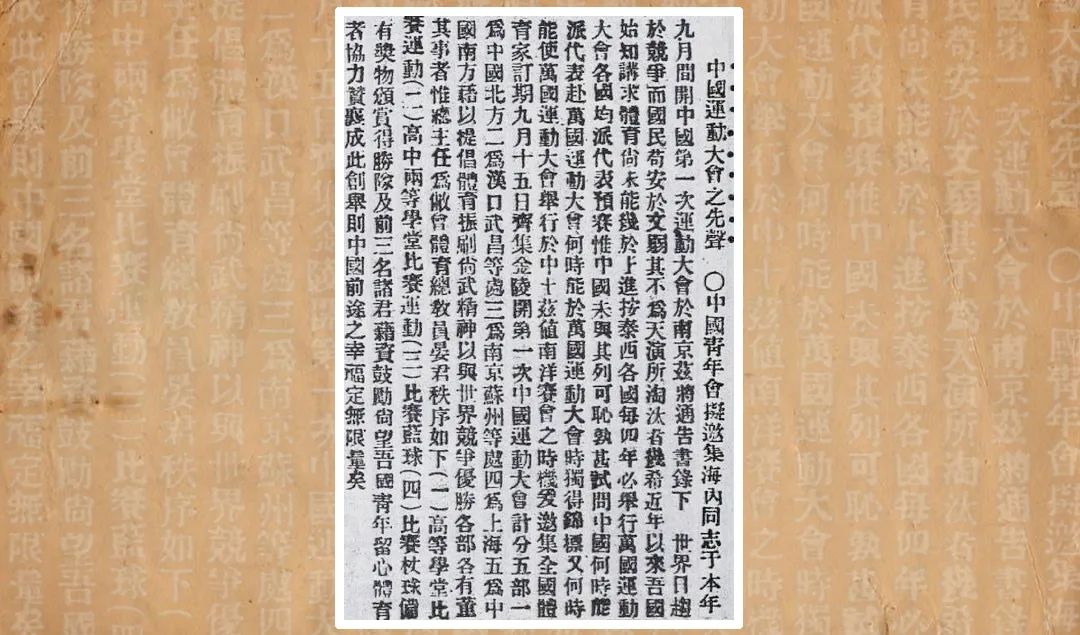 中國運動大會之先聲　○中國青年會擬邀集海內同志于本年
九月間開中國第一次運動大會於南京茲將通告書錄下　世界日趨
於競爭而國民苟安於文弱其不爲天演所淘汰者幾希近年以來吾國
始知講求體育尚未能幾於上進按泰西各國每四年必舉行萬國運動
大會各國均派代表預賽惟中國未與其列可恥孰甚試問中國何時能
派代表赴萬國運動大會何時能於萬國運動大會時獨得錦標又何時
能使萬國運動大會舉行於中土茲値南洋賽會之時機爰邀集全國體
育家訂期九月十五日齊集金陵開第一次中國運動大會計分五部一
爲中國北方二爲漢口武昌等處三爲南京蘇州等處四爲上海五爲中
國南方藉以提倡體育振刷尚武精神以與世界競爭優勝各部各有董
其事者惟總主任爲敝會體育總敎員晏君秩序如下(一)高等學堂比
賽運動(二)高中兩等學堂比賽運動(三)比賽藍球(四)比賽杖球備
有獎物頒賞得勝隊及前三名諸君藉資鼓勵尚望吾國青年留心體育
者協力贊襄成此創舉則中國前途之幸福定無限量矣